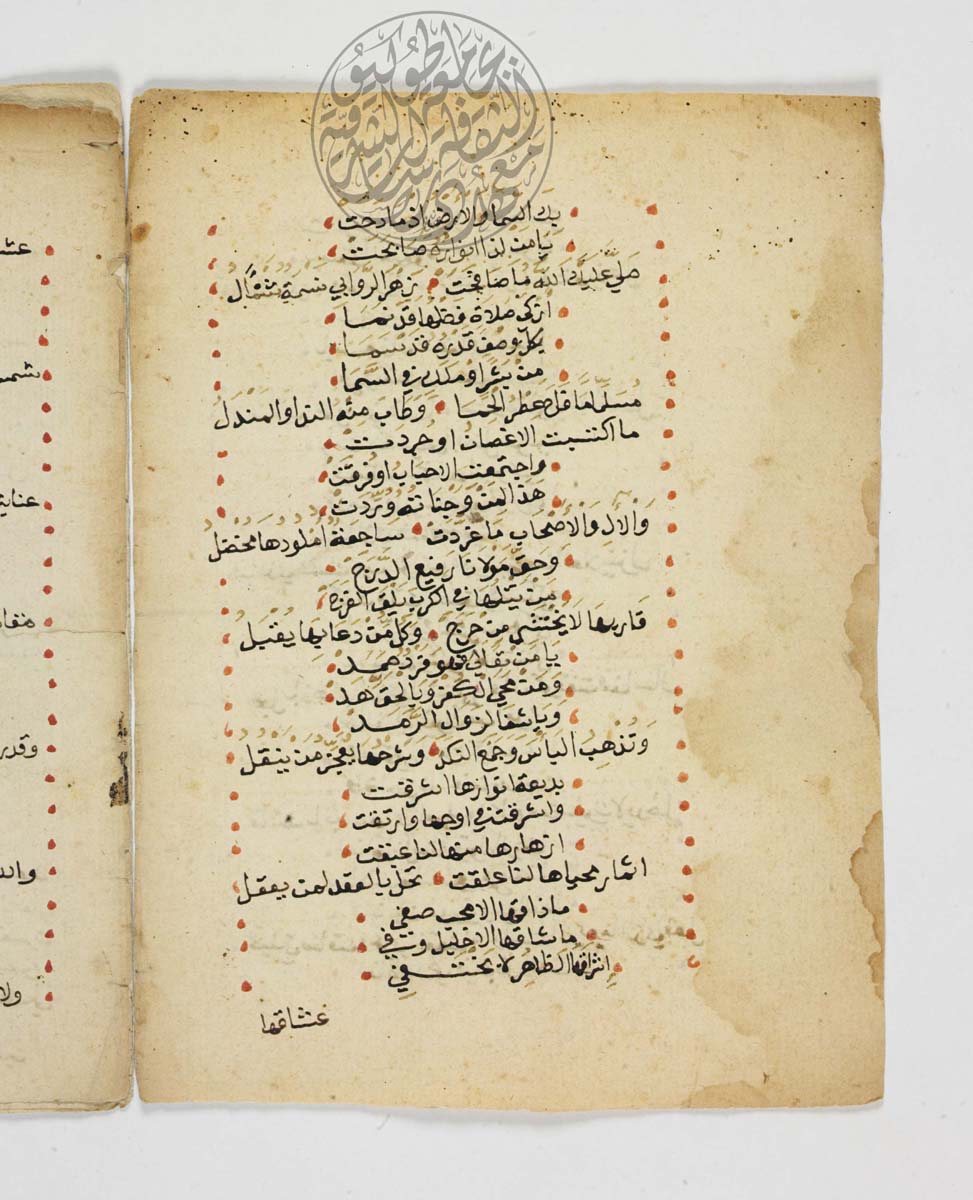 بك السما والأرض إذ ما دحت
يا من لنا انواره صابحت
صلى عليك الله ما صافحت زهر الروابي نسمة شمأل
ازكى صلاة فضلها قد نما
بكل وصف قدره قد سما
من بشر او ملك في السما
مسلما ما قل عطر الحما وطاب منه الندا والمندل
ما اكتست الاغصان او جردت
واجتمعت الاحباب او فرقت
هذا لمن وجناته وردت
والأل والأصحاب ما غردت ساجعة املودها مخضل
وحق مولانا رفيع الدرج
من يتلها في اكرب يلق الفرج
قاريها لا يختشي من حرج وكل من دعا بها يقبل
يا من تعالى فهو فرد صمد
ومن محي الكفر وبالحق هد
ويا شفا لزوال الرمد
وتذهب الباس وجمع النكد وشرحها يعجز من ينقل
بديعة انوارها اشرقت
واشرقت في اوجها وارتقت
ازهارها منها لنا عبقت
اثمار محياها لنا علقت تحل بالعقد لمن يعقل
ما ذاقها الا محب صفي
ما شاقها الا خليل وفي
اشراقها الظاهر لا يختفي
عشاقها
وقدر